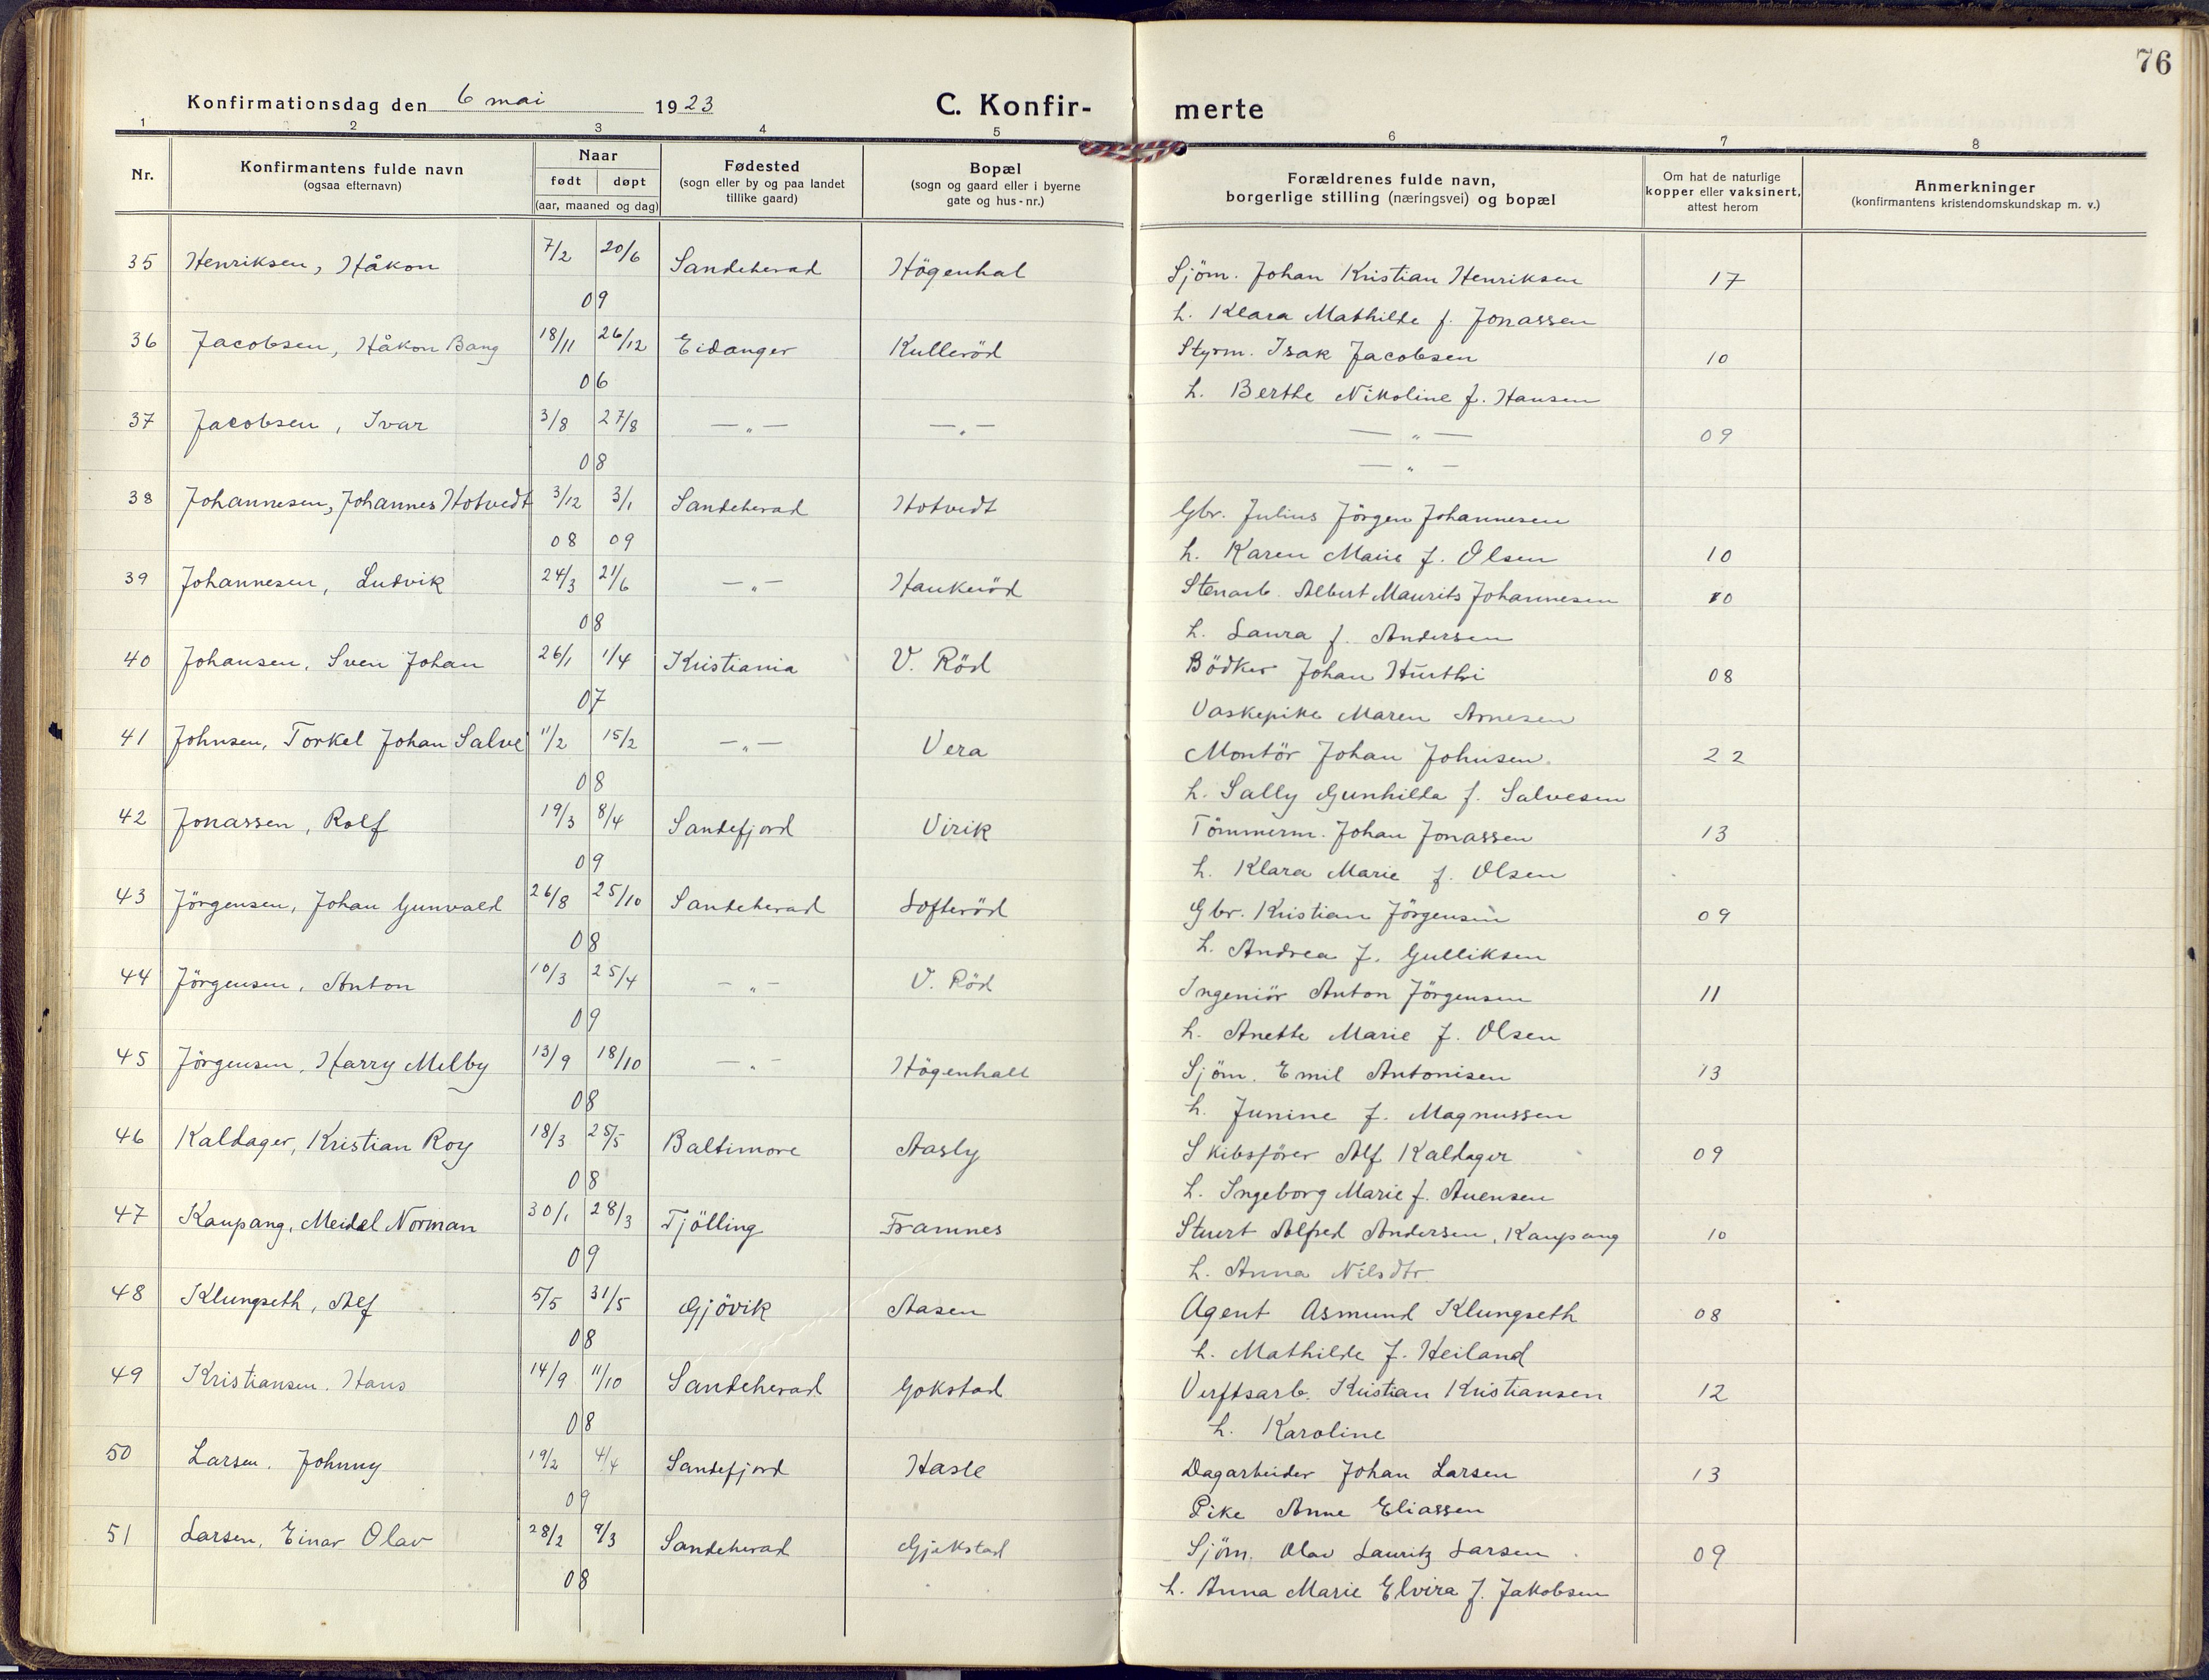 76
Konfirmationsdag den 6 mai 1923
C. Konfir- merte
1 2 3 4 5 6 7 8
Nr.
Konfirmantens fulde navn
(ogsaa efternavn)
Naar
født døpt
(aar, maaned og dag)
Fødested
(sogn eller by og paa landet
tillike gaard)
Bopæl
(sogn og gaard eller i byerne
gate og hus-nr.)
Forældrenes fulde navn,
borgerlige stilling (næringsvei) og bopæl
Om hat de naturlige
kopper eller vaksinert,
attest herom
Anmerkninger
(konfirmantens kristendomskundskap m. v.)
35 Henriksen, Håkon 7/2 20/6 Sandeherad Högenhal Sjöm. Johan Kristian Henriksen 17
09 h. Klara Mathilde f. Jonassen
36 Jacobsen, Håkon Bang 18/11 26/12 Eidanger Kulleröd Styrm. Isak Jacobsen 10
06 h. Berthe Nikoline f. Hansen
37 Jacobsen, Ivar 3/8 27/8 —„— —„— —„— 09
08 —„—
38 Johannesen, Johannes Hotvedt 3/12 3/1 Sandeherad Hotvedt Gbr. Julius Jörgen Johannesen
08 09 h. Karen Marie f. Olsen 10
39 Johannesen, Ludvik 24/3 21/6 —„— Haukeröd Stenarb. Albert Maurits Johannesen 10
08 h. Laura f. Andersen
40 Johansen, Sven Johan 26/1 1/4 Kristiania V. Röd Bödker Johan 08
07 Vaskepike Maren Arnesen
41 Johnsen, Torkel Johan Salve 11/2 15/2 —„— Vera Montör Johan Johnsen. 22
08 h. Sally Gunhilda f. Salvesen
42 Jonassen, Rolf 19/3 8/4 Sandefjord Virik Tömmerm. Johan Jonassen 13
09 h. Klara Marie f. Olsen
43 Jörgensen, Johan Gunvald 26/8 25/10 Sandeherad Lofteröd Gbr. Kristian Jörgensen 09
08 h. Andrea f. Gulliksen
44 Jörgensen, Anton 10/3 25/4 —„— V. Röd Ingeniör Anton Jörgensen 11
09 h. Anette Marie f. Olsen
45 Jörgensen, Harry Melby 13/9 18/10 —„— Högenhall Sjöm. Emil Antonisen 13
08 h. Junine f. Magnussen
46 Kaldager, Kristian Roy 18/3 25/5 Baltimore Aasly Skibsförer Alf Kaldager 09
08 h. Ingeborg Marie f. Auensen
47 Kaupang, Meidel Norman 30/1 28/3 Tjölling Framnes Stuert Alfred Andersen, Kaupang 10
09 h. Anna Nilsdtr
48 Klungseth, Alf 5/5 31/5 Gjövik Aasen Agent Asmund Klungseth 08
08 h. Mathilde f. Heiland
49 Kristiansen. Hans 14/9 11/10 Sandeherad Gokstad Verftsarb. Kristian Kristiansen 12
08 h. Karoline
50 Larsen. Johnny 19/2 4/4 Sandefjord Hasle Dagarbeider Johan Larsen 13
09 Pike Anne Eliassen
51 Larsen, Einar Olav 28/2 9/3 Sandeherad Gjekstad Sjöm. Olav Lauritz Larsen 09
08 h. Anna Marie Elvira f. Jakobsen